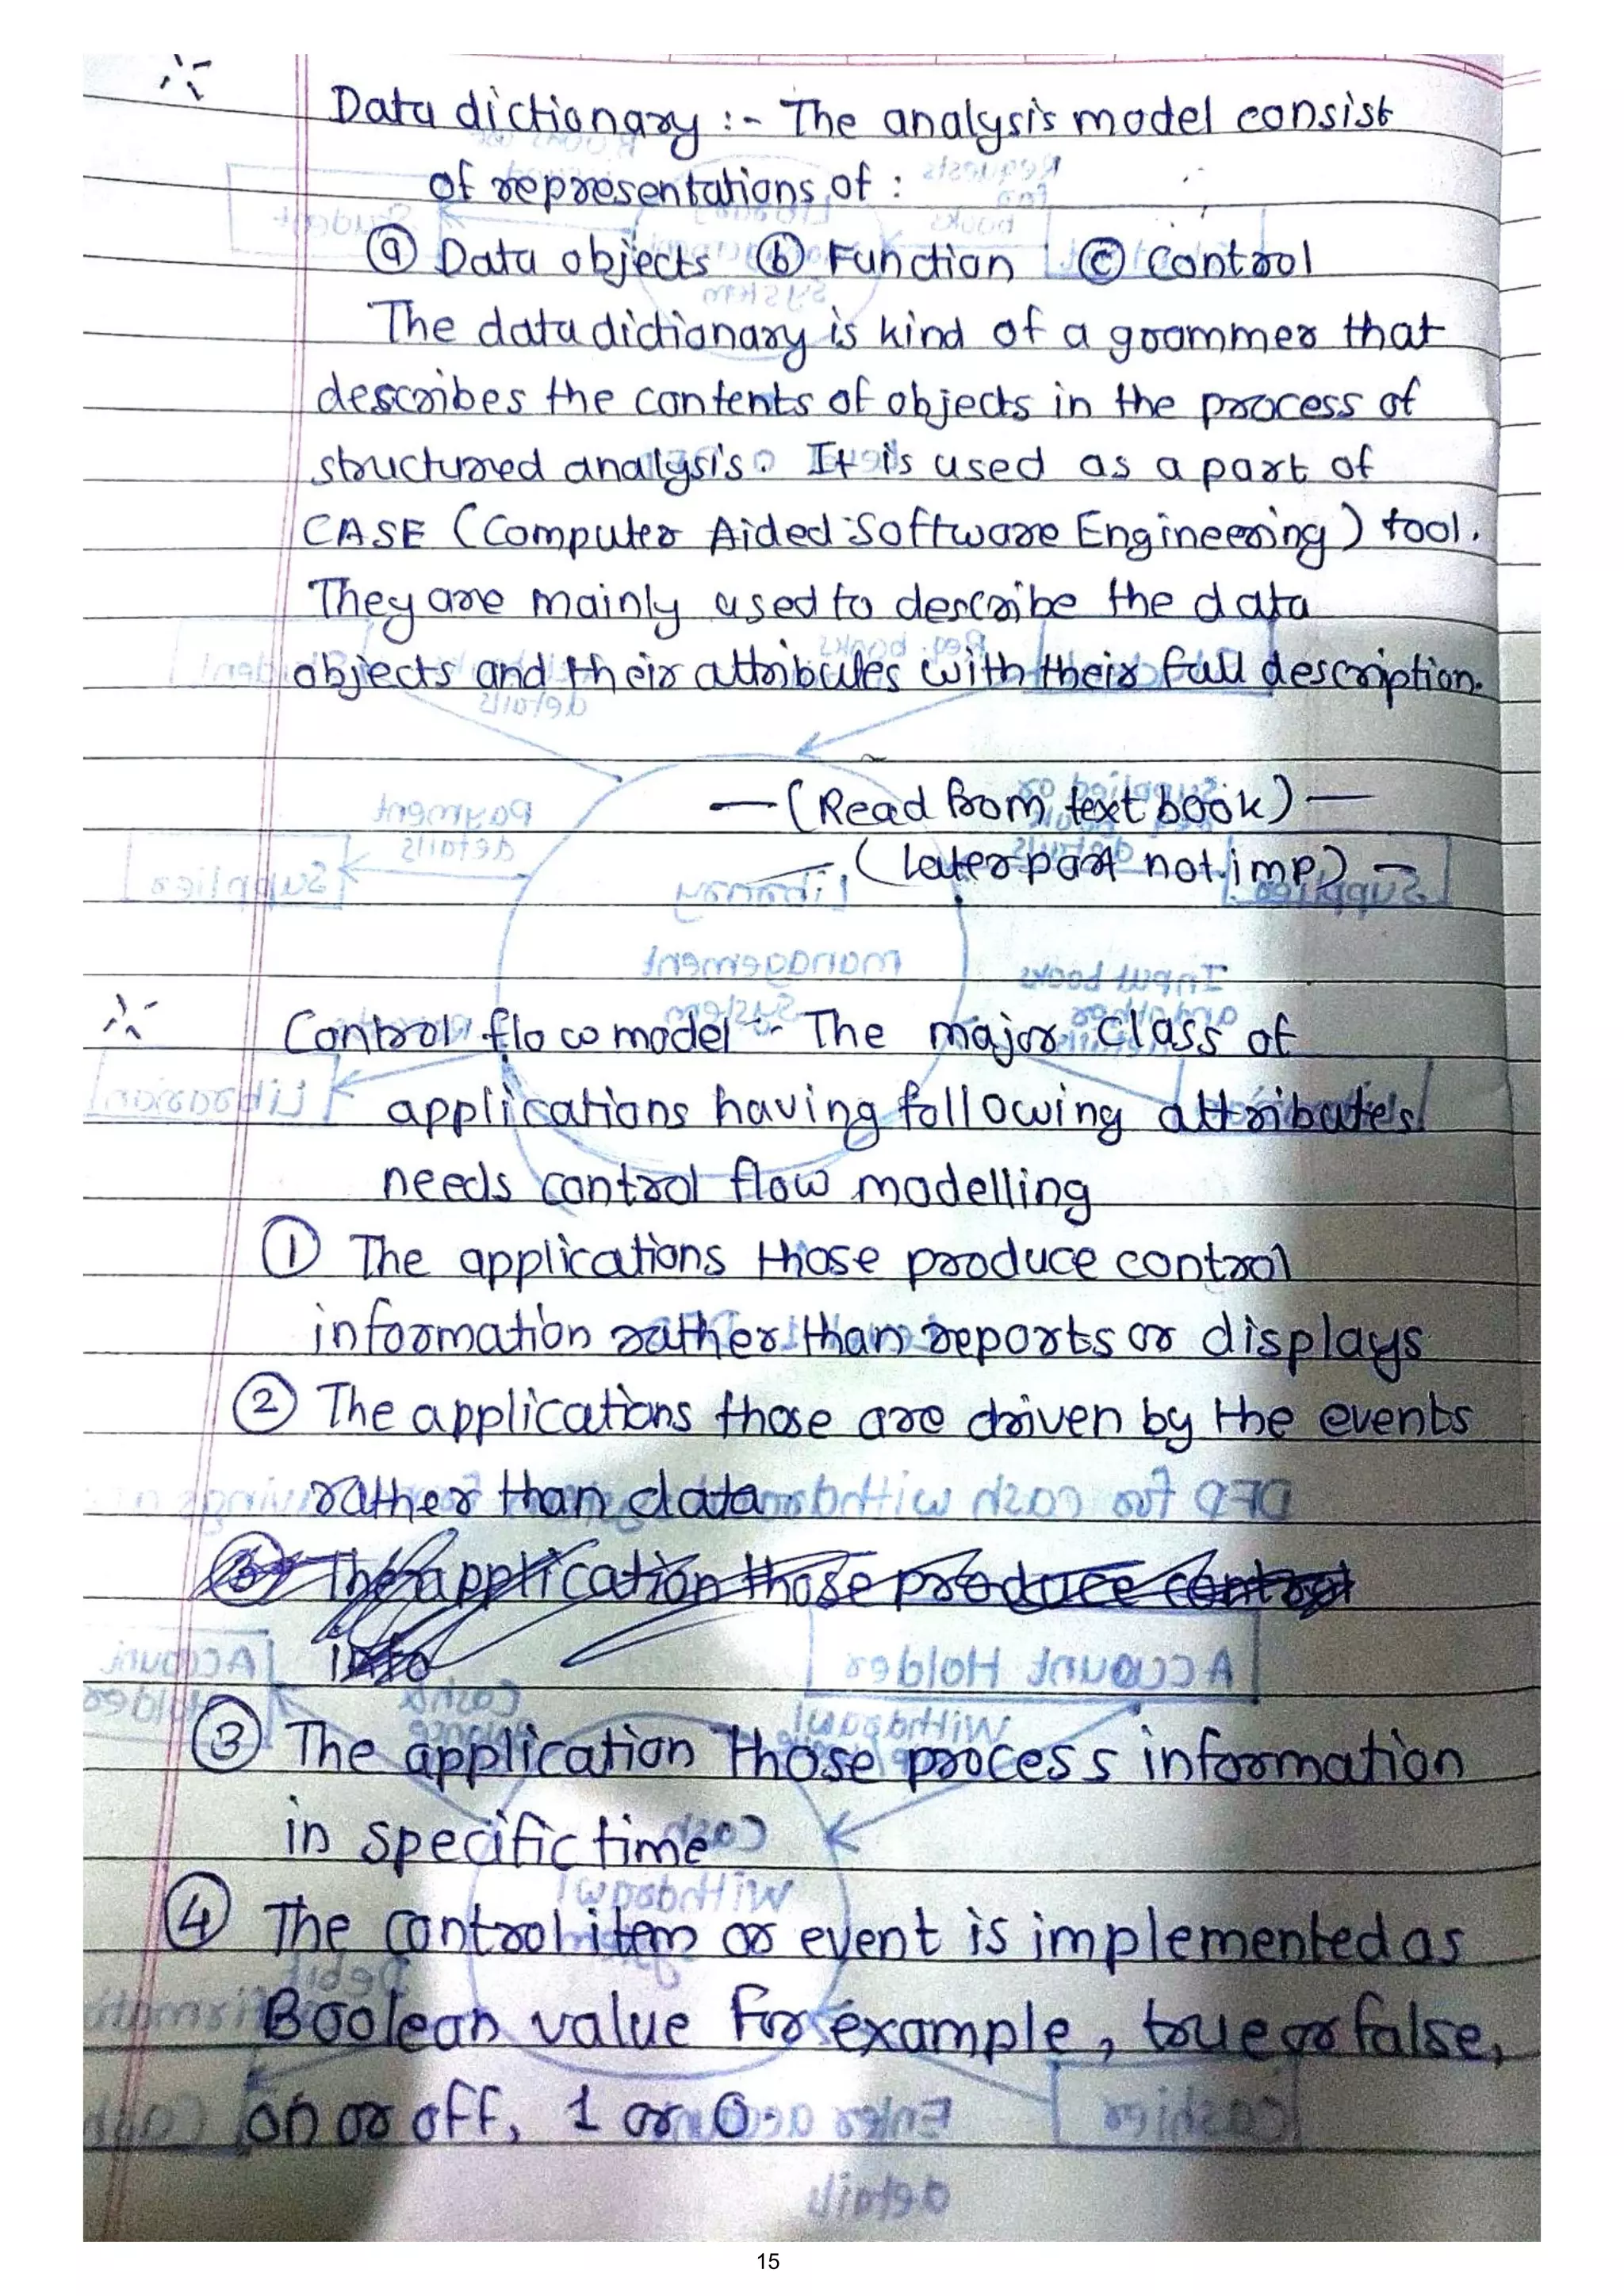 Data dictionary :- The analysis model consist
of representations of :
ⓐ Data objects ⓑ Function ⓒ Control
The data dictionary is kind of a grammer that
describes the contents of objects in the process of
structured analysis. It is used as a part of
CASE (Computer Aided Software Engineering) tool.
They are mainly used to describe the data
objects and their attributes with their full description.
— (Read from text book) —
— (Later part not imp) —
Control flow model :- The major class of
applications having following attributes
needs control flow modelling
① The applications those produce control
information rather than reports or displays
② The applications those are driven by the events
rather than data
③ The application those produce control
info
③ The application those process information
in specific time
④ The control item or event is implemented as
Boolean value for example, true or false,
on or off, 1 or 0.
15